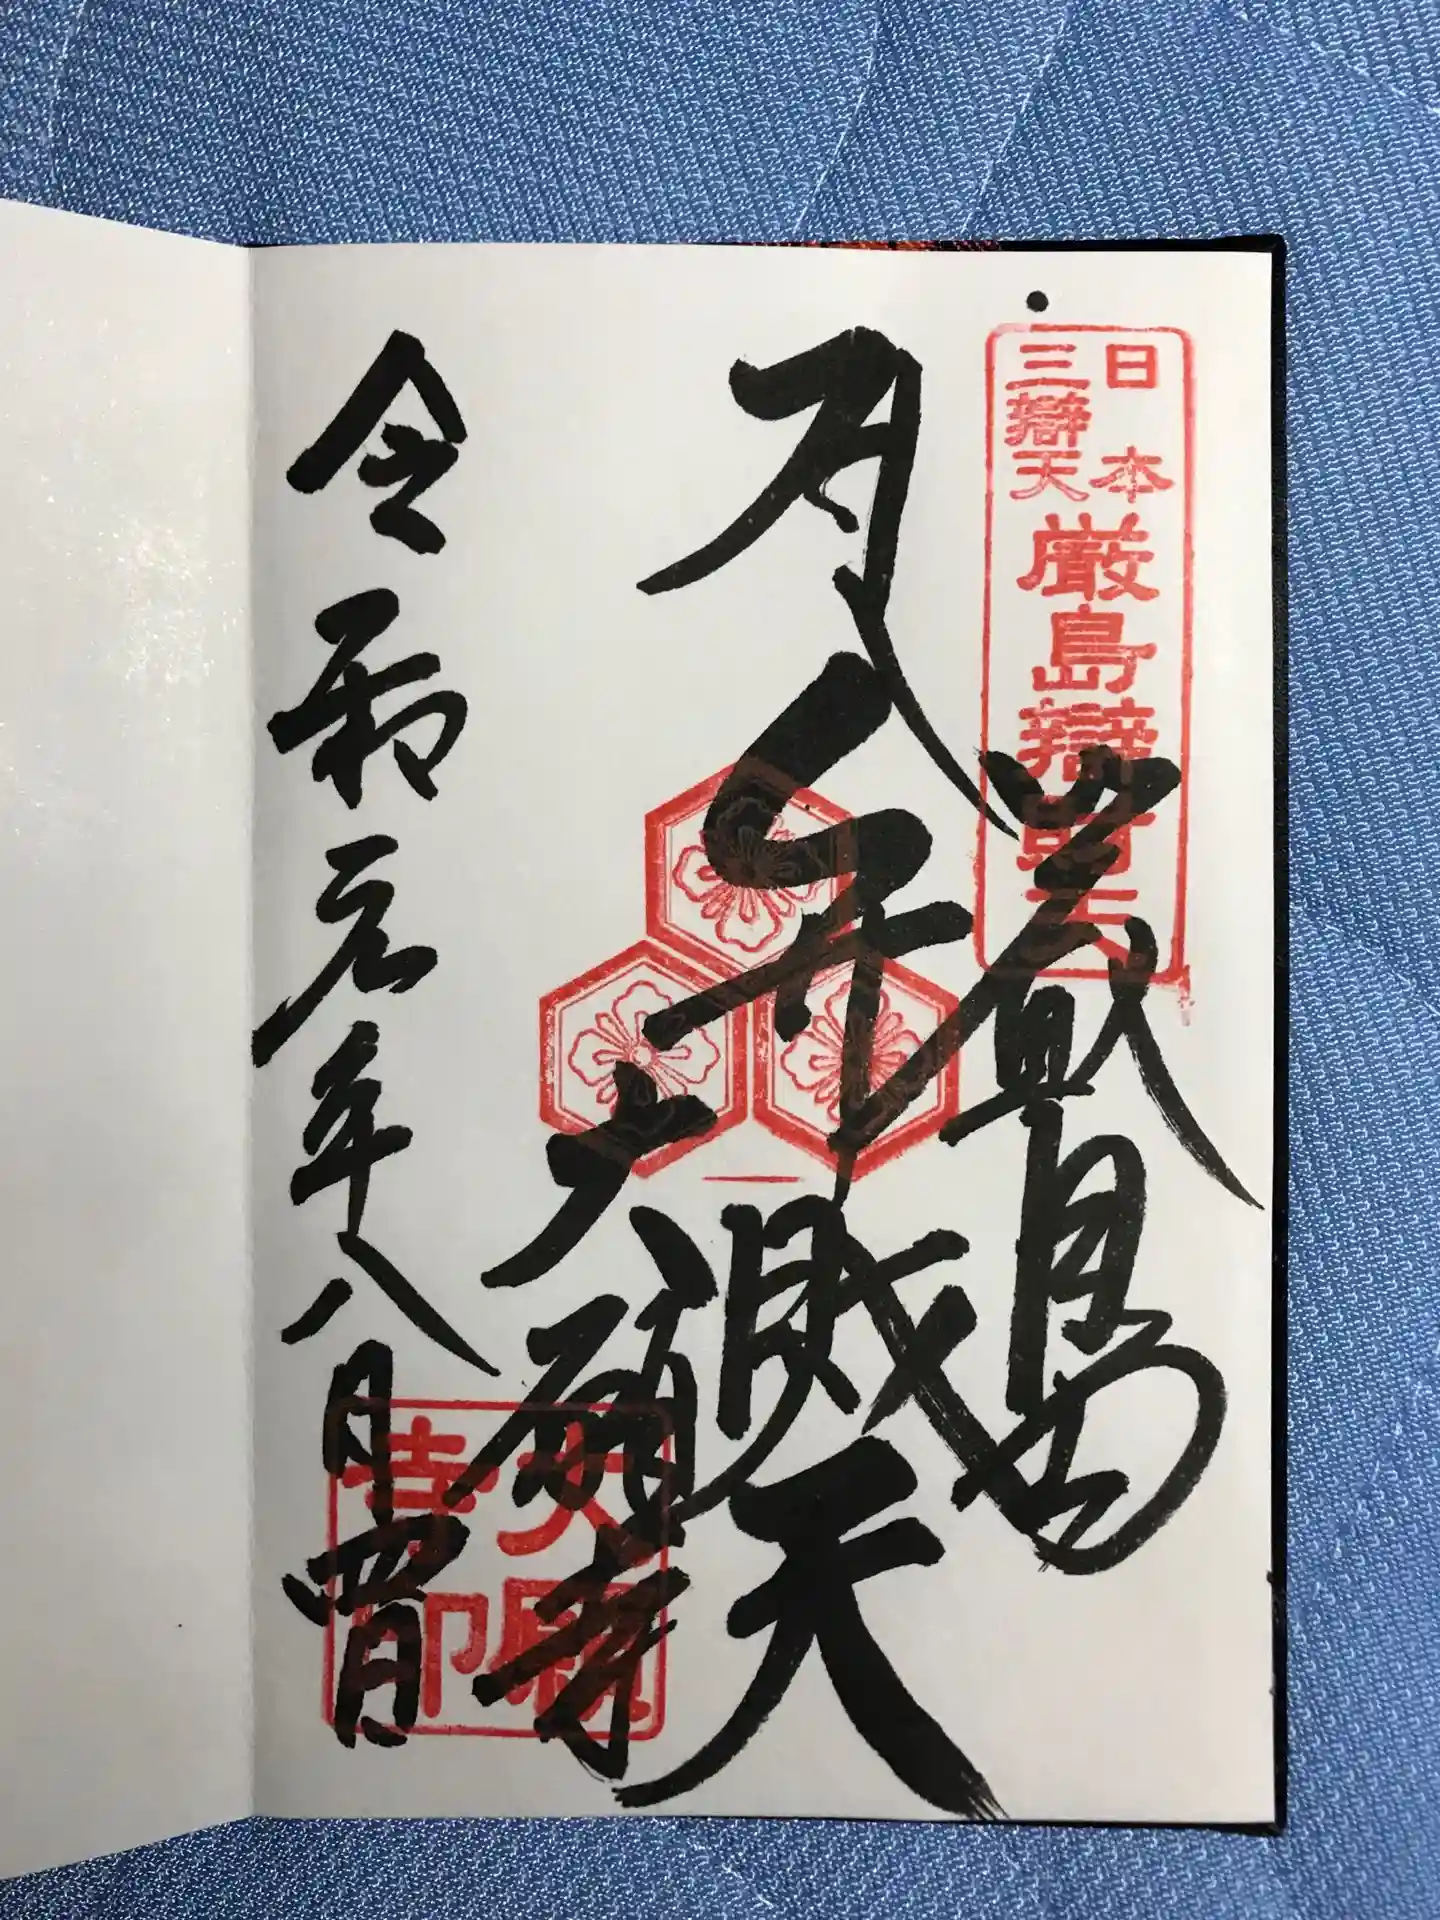 日本
三辯天
厳島辯財天
嚴島
弁財天
大願寺
大願
寺印
令和元年八月四日